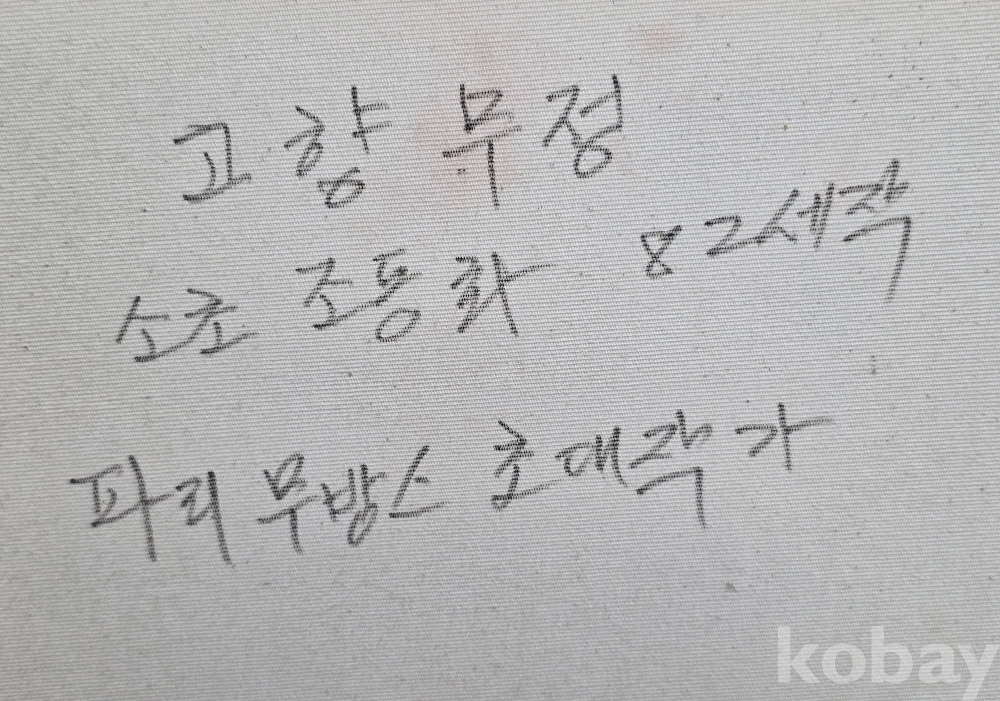 고향 무정
소초 조동화 82세작
파리 무방스 초대작가
kobay